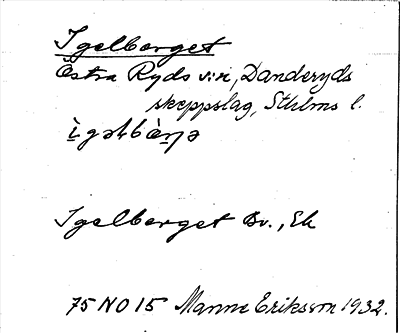 Igelberget
Östra Ryds s:n, Danderyds
skeppslag, Sthlms l.
Igelberget Bv., Ek
75 NO 15 Manne Eriksson 1932.